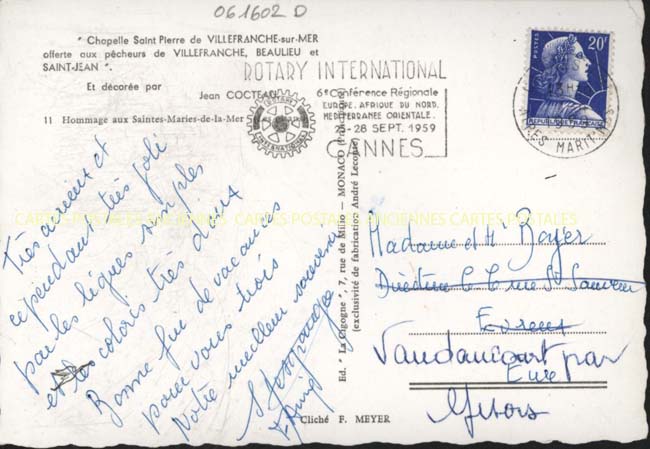 061602 D
" Chapelle Saint Pierre de VILLEFRANCHE-sur-MER
offerte aux pêcheurs de VILLEFRANCHE, BEAULIEU et
SAINT-JEAN ".
Et décorée par
Jean COCTEAU
11 Hommage aux Saintes-Maries-de-la-Mer
ROTARY INTERNATIONAL
6e Conférence Régionale
EUROPE. AFRIQUE DU NORD.
MEDITERRANEE ORIENTALE.
25-28 SEPT. 1959
CANNES
ROTARY
INTERNATIONAL
POSTES
20F
REPUBLIQUE FRANCAISE
MARIT
Très ancien et
cependant très joli
par les lignes simples
et les coloris très doux
Bonne fin de vacances
pour vous trois
Notre meilleur souvenir
Ed. " La Cigogne ", 7, rue de Millo - MONACO
(exclusivité de fabrication André Lecoq)
Cliché F. MEYER
Madame et Mr Boyer
Directrice C. C. rue St Sauveur
Evreux
Vaudancourt par
Eure
Gisors
CARTES POSTALES ANCIENNES CARTES POSTALES ANCIENNES CARTES POSTALES